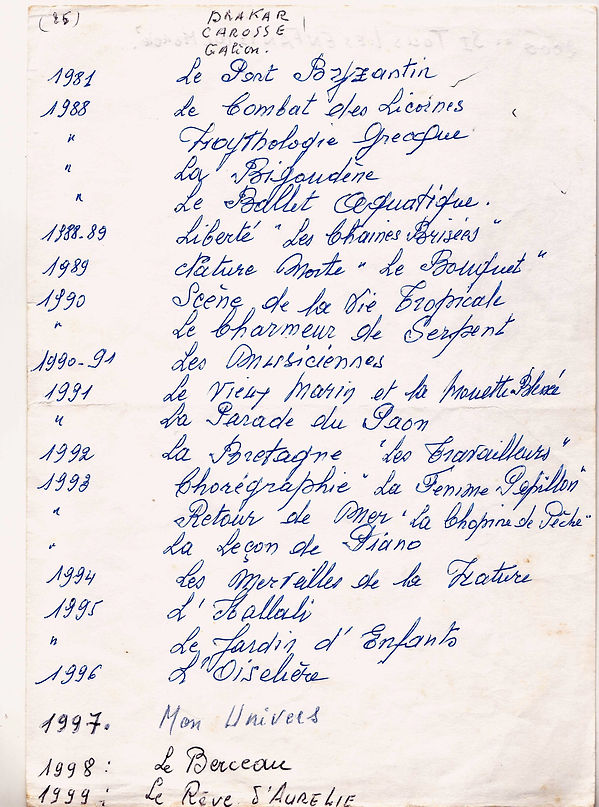 (25) DRAKAR
CAROSSE
Galion.
1981 Le Port Byzantin
1988 Le Combat des Licornes
" Mythologie Grecque
" La Bigoudène
" Le Ballet Aquatique.
1988-89 Liberté "Les Chaines Brisées"
1989 Nature Morte "Le Bouquet"
1990 Scène de la Vie Tropicale
" Le Charmeur de Serpent
1990-91 Les Musiciennes
1991 Le Vieux Marin et la Mouette Blessé
" La Parade du Paon
1992 La Bretagne "Les Travailleurs"
1993 Chorégraphie "La Femme Papillon"
" Retour de Mer "La Chopine de Pêche"
" La Leçon de Piano
1994 Les Merveilles de la Nature
1995 L'Hallali
" Le Jardin d'Enfants
1996 L'Oiselière
1997. Mon Univers
1998: Le Berceau
1999: Le Rêve d'AURELIE